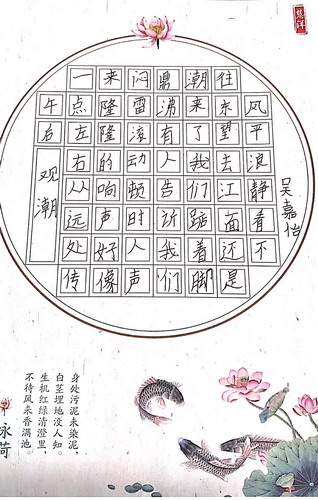 观潮
午后
一点左右从远处传
来隆隆的响声好像
闷雷滚动顿时人声
鼎沸有人告诉我们
潮来了我们踮着脚
住东望去江面还是
风平浪静看不
吴嘉怡
咏荷
身处污泥未染泥，
白茎埋地没人知。
生机红绿清澄里，
不待风来香满池。